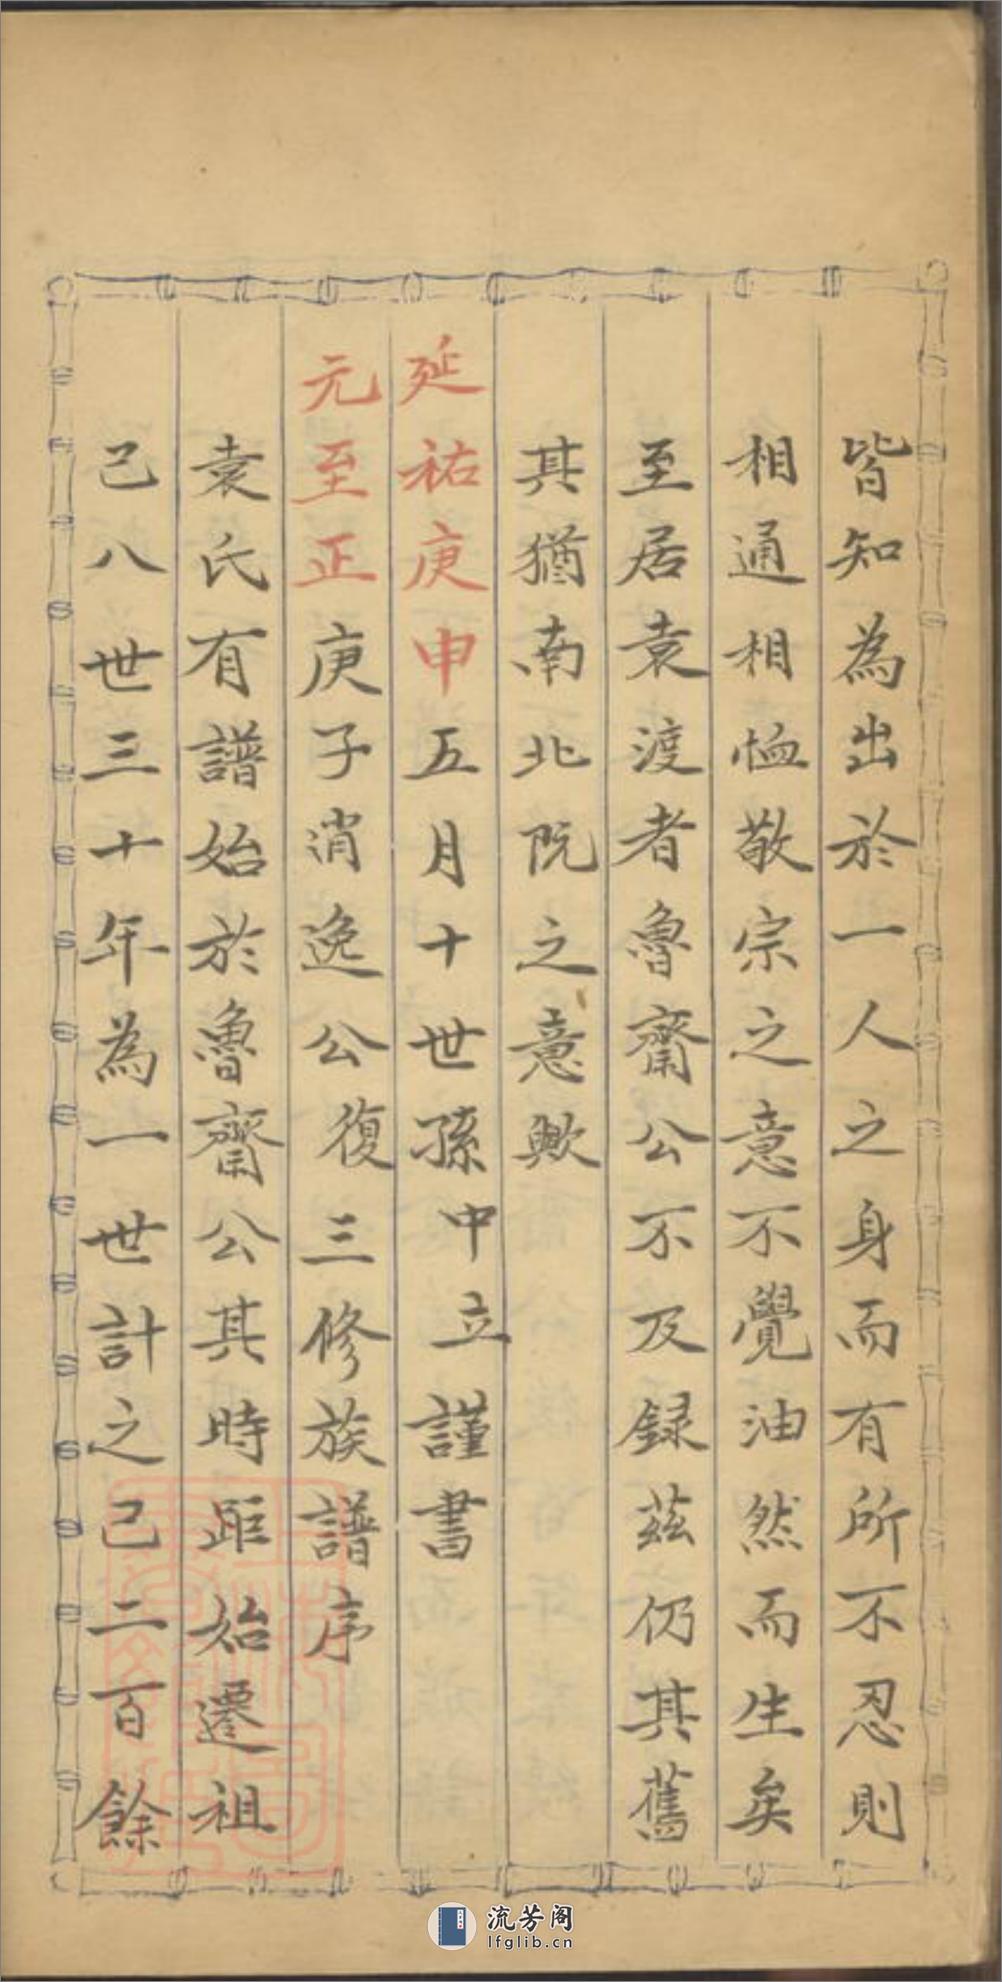 皆知為出於一人之身而有所不忍則
相通相恤敬宗之意不覺油然而生矣
至居袁渡者魯齋公不及録茲仍其舊
其猶南北阮之意歟
延祐庚申五月十世孫中立謹書
元至正庚子消逸公復三修族譜序
袁氏有譜始於魯齋公其時距始遷祖
己八世三十年為一世計之己二百餘
流芳阁
lfglib.cn